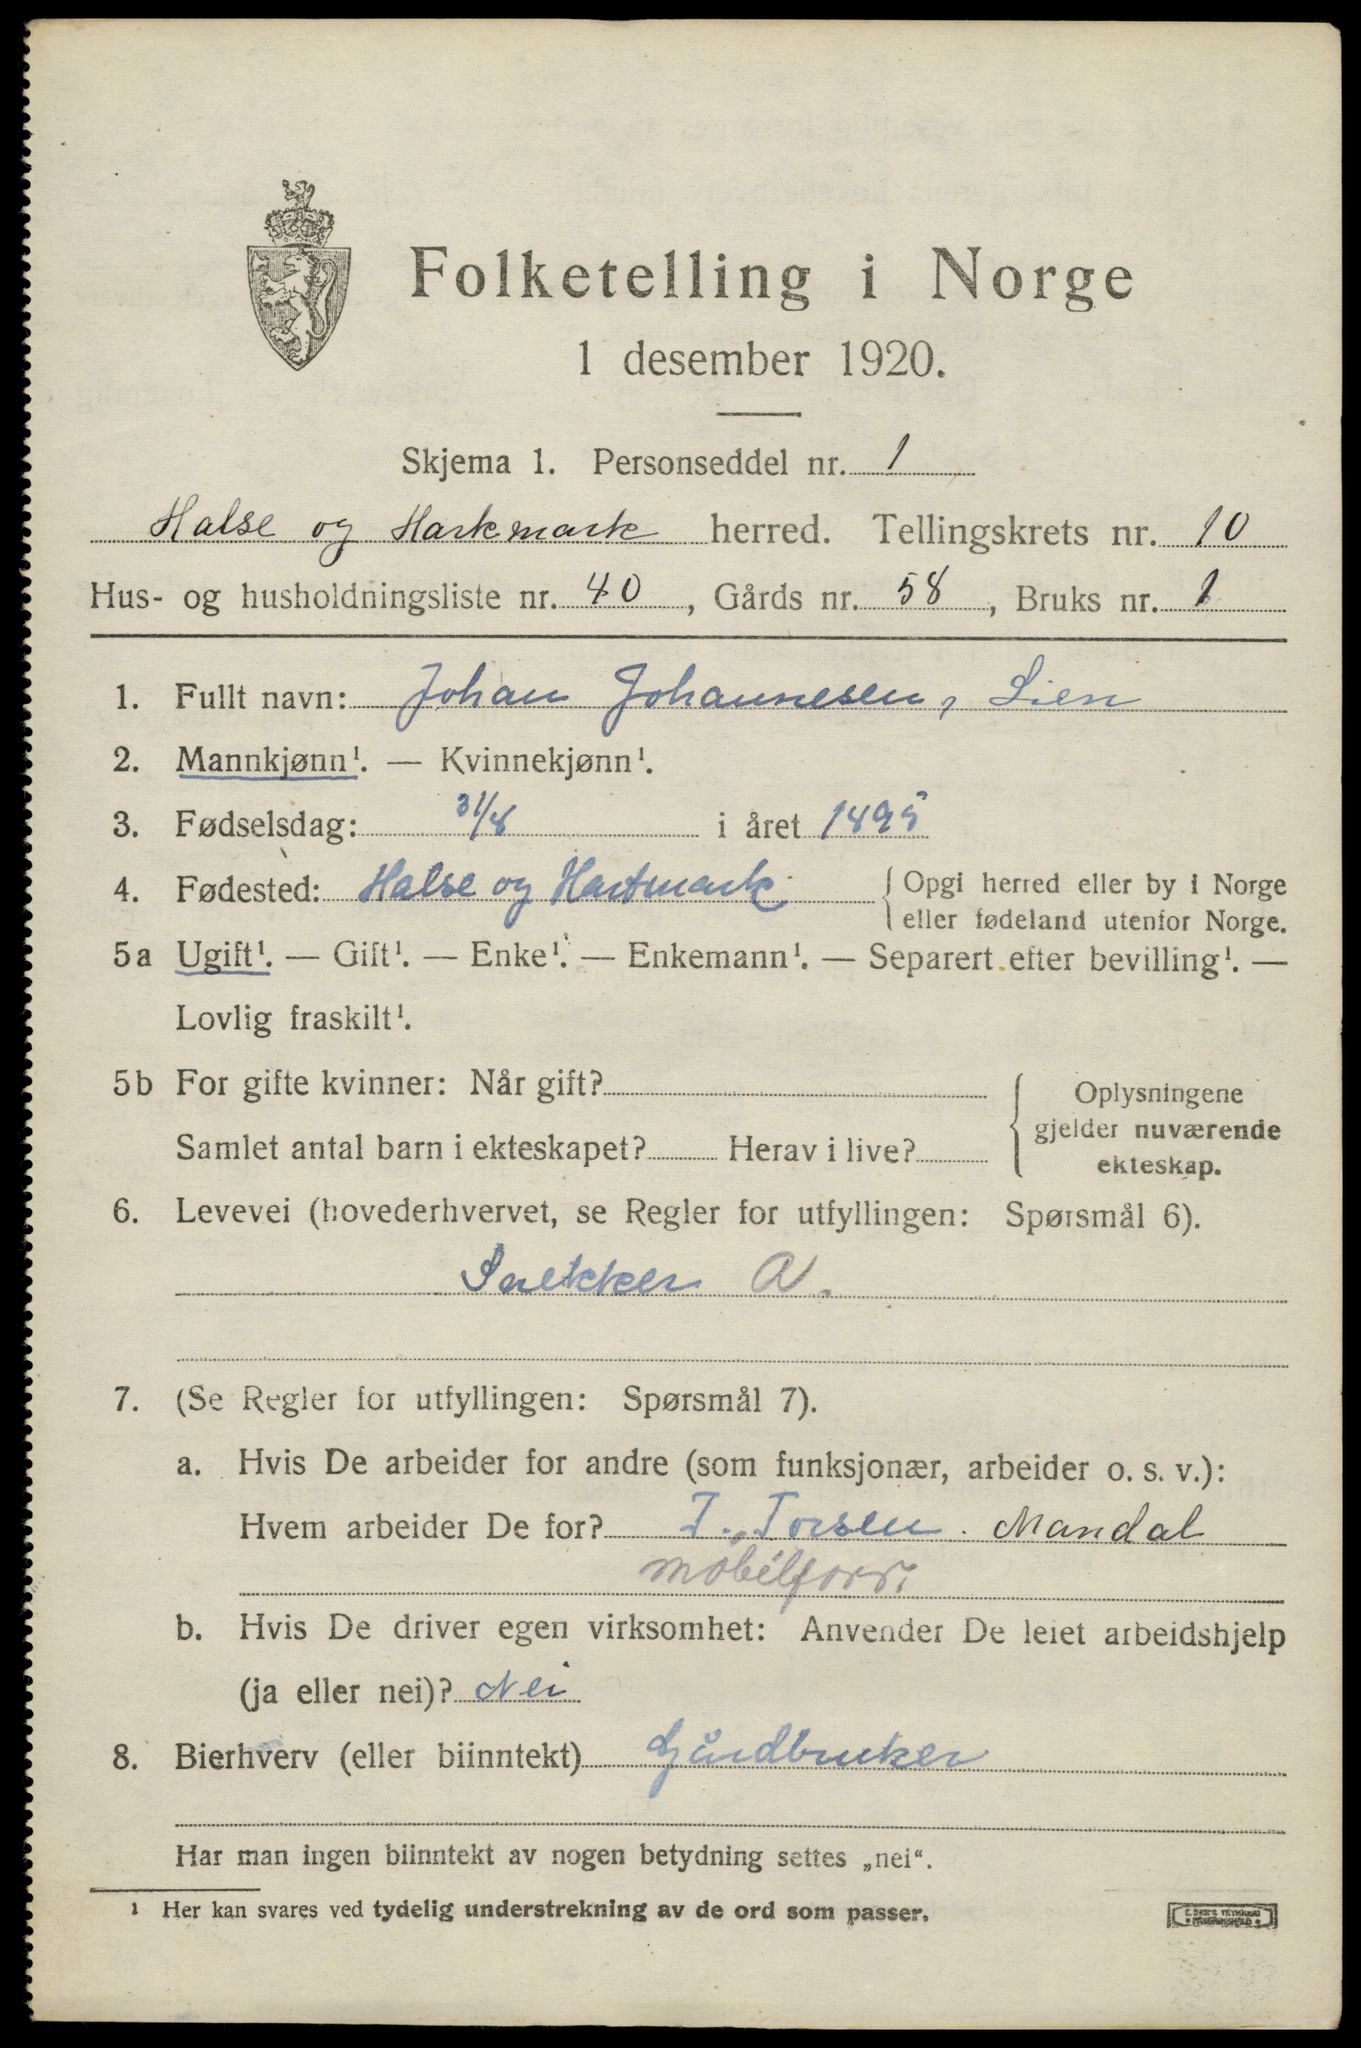 Folketelling i Norge
1 desember 1920.
Skjema 1. Personseddel nr. 1
Halse og Harkmark herred. Tellingskrets nr. 10
Hus- og husholdningsliste nr. 40, Gårds nr. 58, Bruks nr. 1
1. Fullt navn: Johan Johannesen, Lien
2. Mannkjønn¹. — Kvinnekjønn¹.
3. Fødselsdag: 31/8 i året 1895
4. Fødested: Halse og Hartmark { Opgi herred eller by i Norge
eller fødeland utenfor Norge.
5a Ugift¹. — Gift¹. — Enke¹. — Enkemann¹. — Separert efter bevilling¹. —
Lovlig fraskilt¹.
5b For gifte kvinner: Når gift?
Samlet antal barn i ekteskapet? Herav i live?
Oplysningene
gjelder nuværende
ekteskap.
6. Levevei (hovederhvervet, se Regler for utfyllingen: Spørsmål 6).
Snekker A.
7. (Se Regler for utfyllingen: Spørsmål 7).
a. Hvis De arbeider for andre (som funksjonær, arbeider o. s. v.):
Hvem arbeider De for? T. Torsen. Mandal
møbelforr.
b. Hvis De driver egen virksomhet: Anvender De leiet arbeidshjelp
(ja eller nei)? Nei
8. Bierhverv (eller biinntekt) Gårdbruker
Har man ingen biinntekt av nogen betydning settes „nei".
¹ Her kan svares ved tydelig understrekning av de ord som passer.